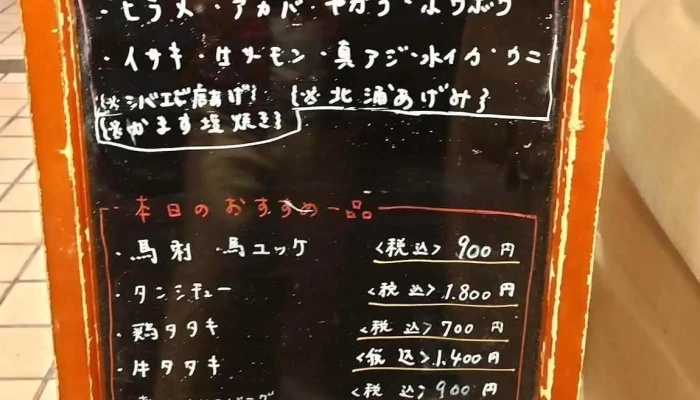 ・ヒラメ・アカバ・ヤガラ・ホウボウ
・イサキ・生サーモン・真アジ・水イカ・ウニ
{※シバエビ唐あげ} {※北浦あげみ}
{※かます塩焼き}
本日のおすすめ一品
・馬刺 ・馬ユッケ <税込> 900円
・タンシチュー <税込> 1.800円
・鶏タタキ <税込> 700円
・牛タタキ <税込> 1.400円
<税込> 900円